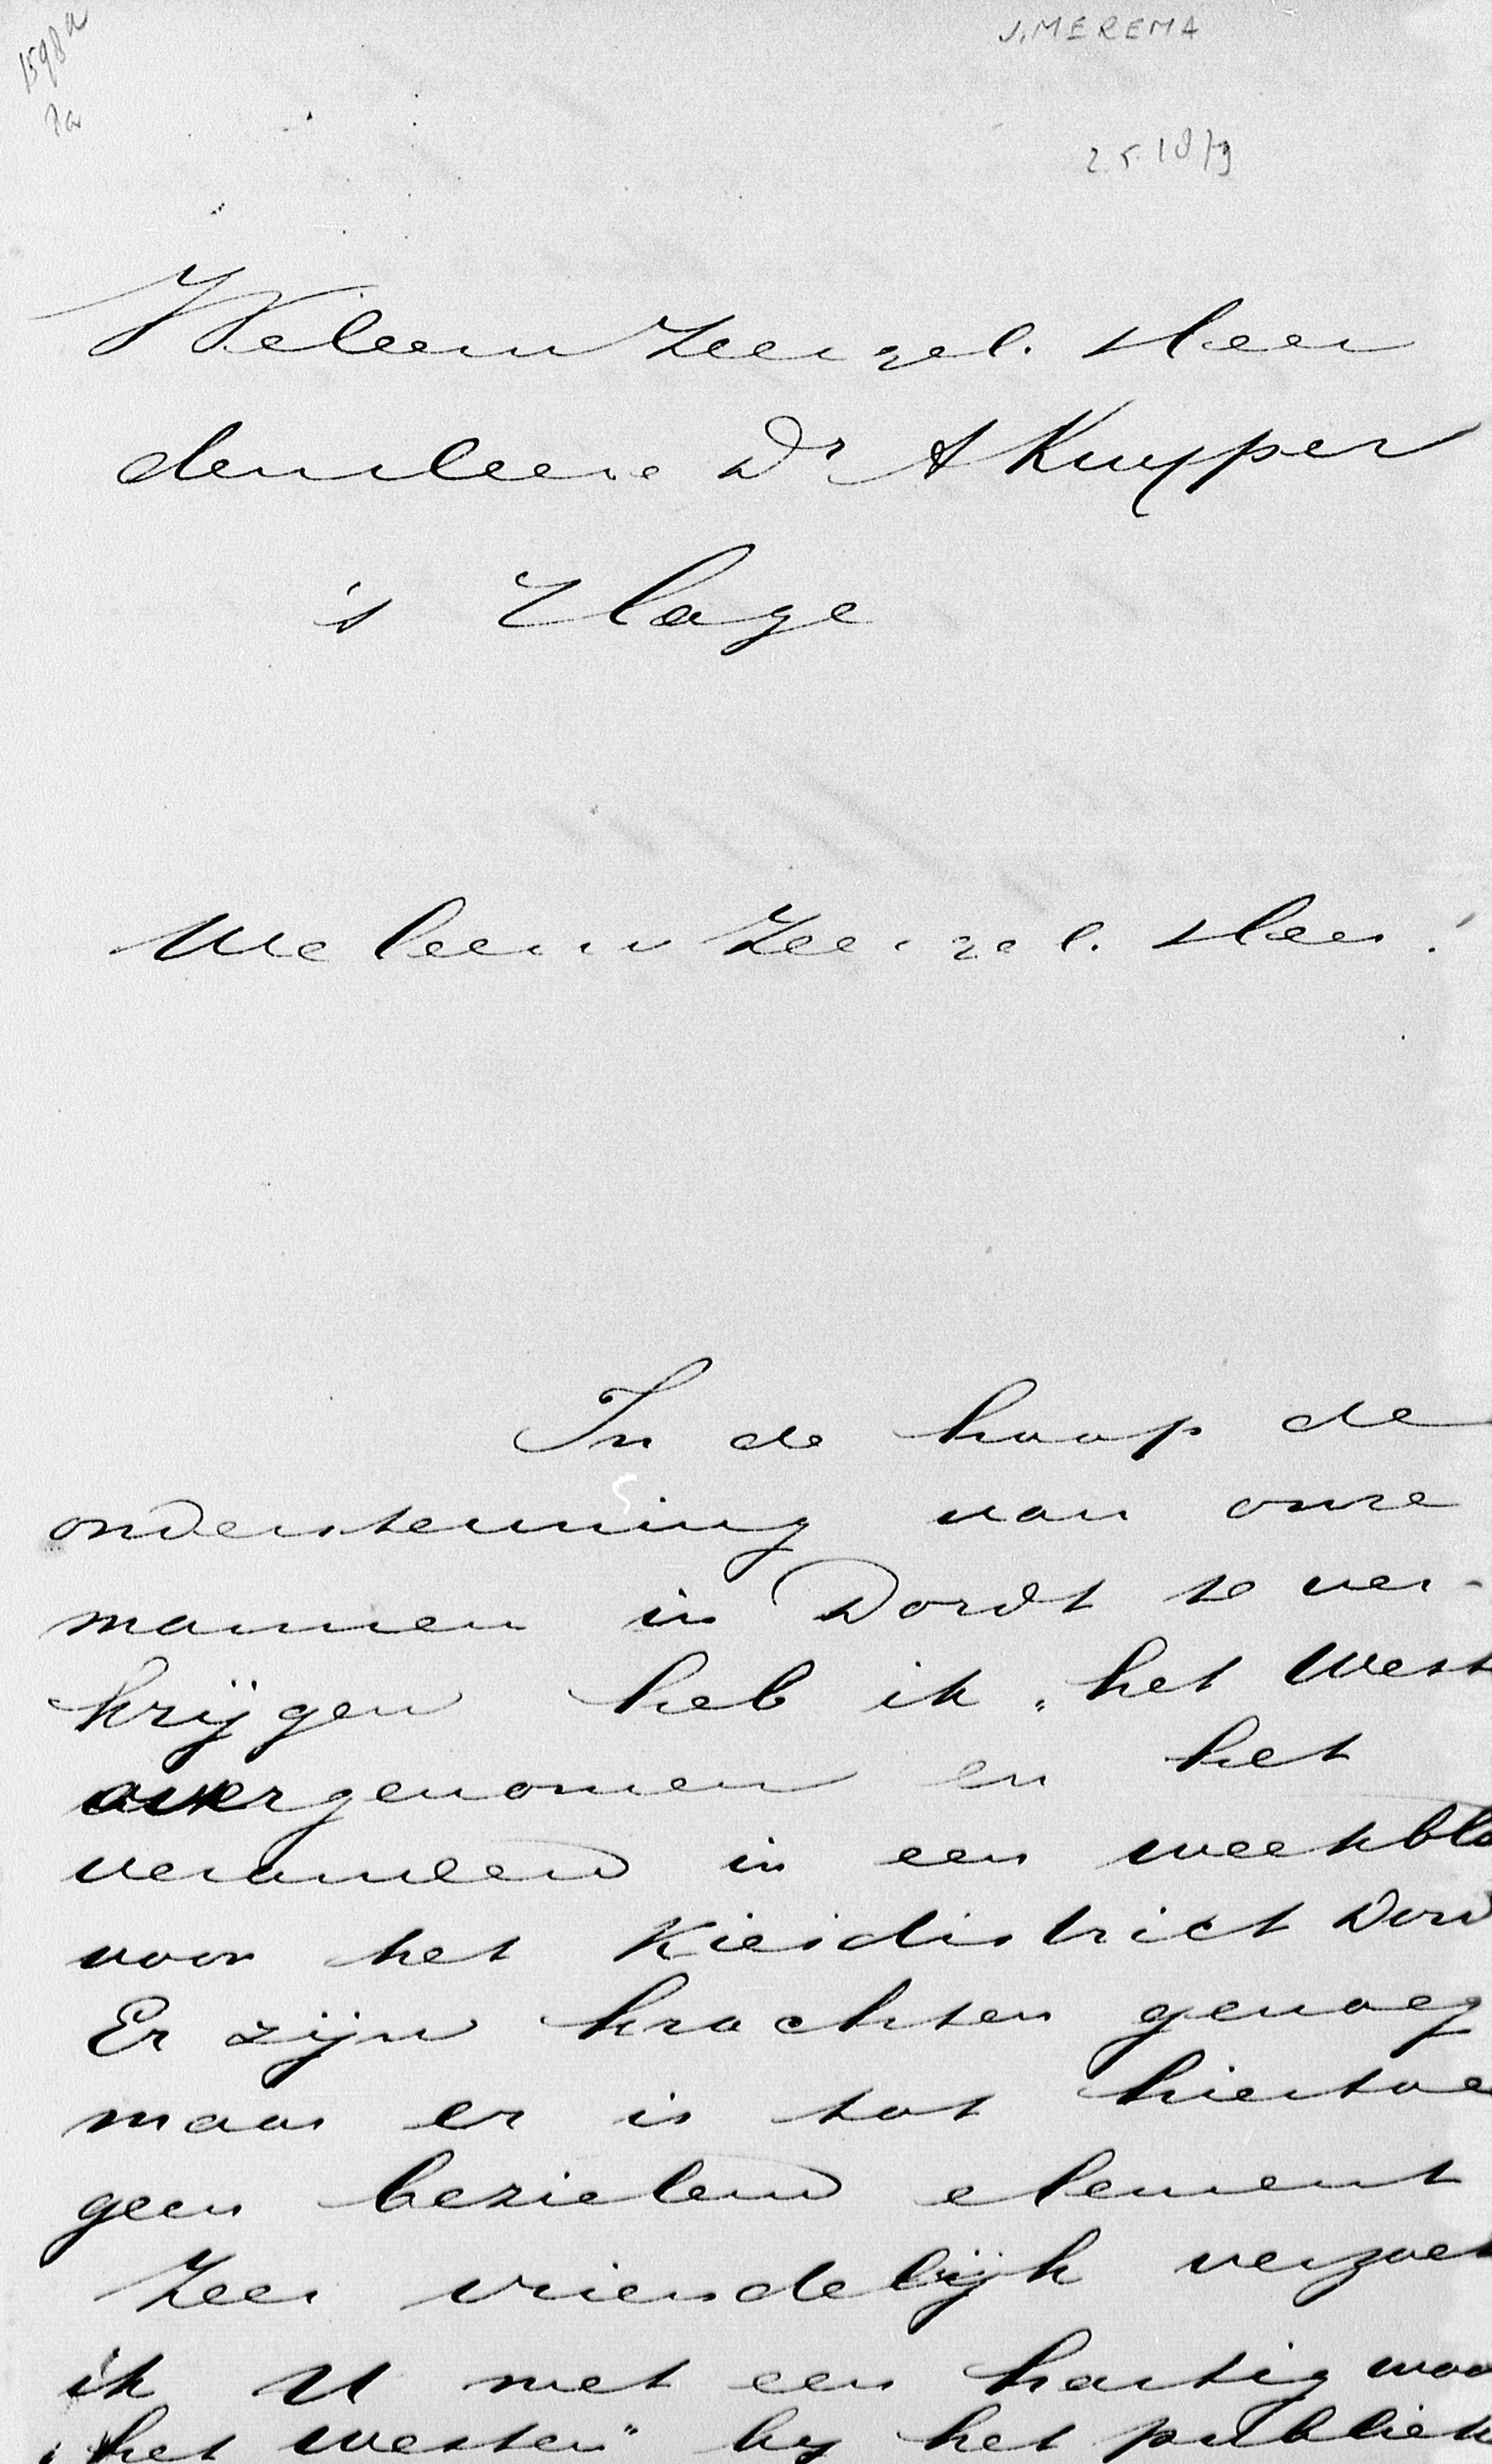 1598a
8a
J. MEREMA
2.5.1879
Weleerw Zeergel. Heer
den Heere Dr A Kuyper
's Hage
Weleerw Zeergel. Heer!
In de hoop de
ondersteuning van onze
mannen in Dordt te ver-
krijgen heb ik „het West
overgenomen en het
veranderd in een weekbla
voor het Kiesdistrict Dord
Er zijn krachten genoeg
maar er is tot hiertoe
geen bezielend element
Zeer vriendelijk verzoek
ik U met een hartig woo
„het Westen" by het publiek